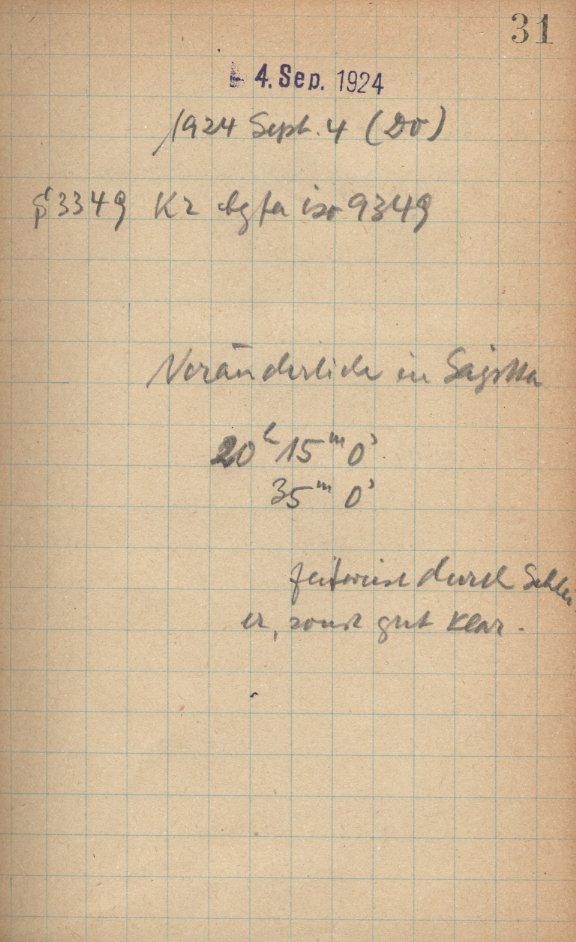 31
4. Sep. 1924
1924 Sept. 4 (Do)
3349 Kr Agfa iso 9349
Veränderliche in Sagitta
20h 15m 0s
35m 0s
zeitweise durch Schlei
er, sonst gut klar.